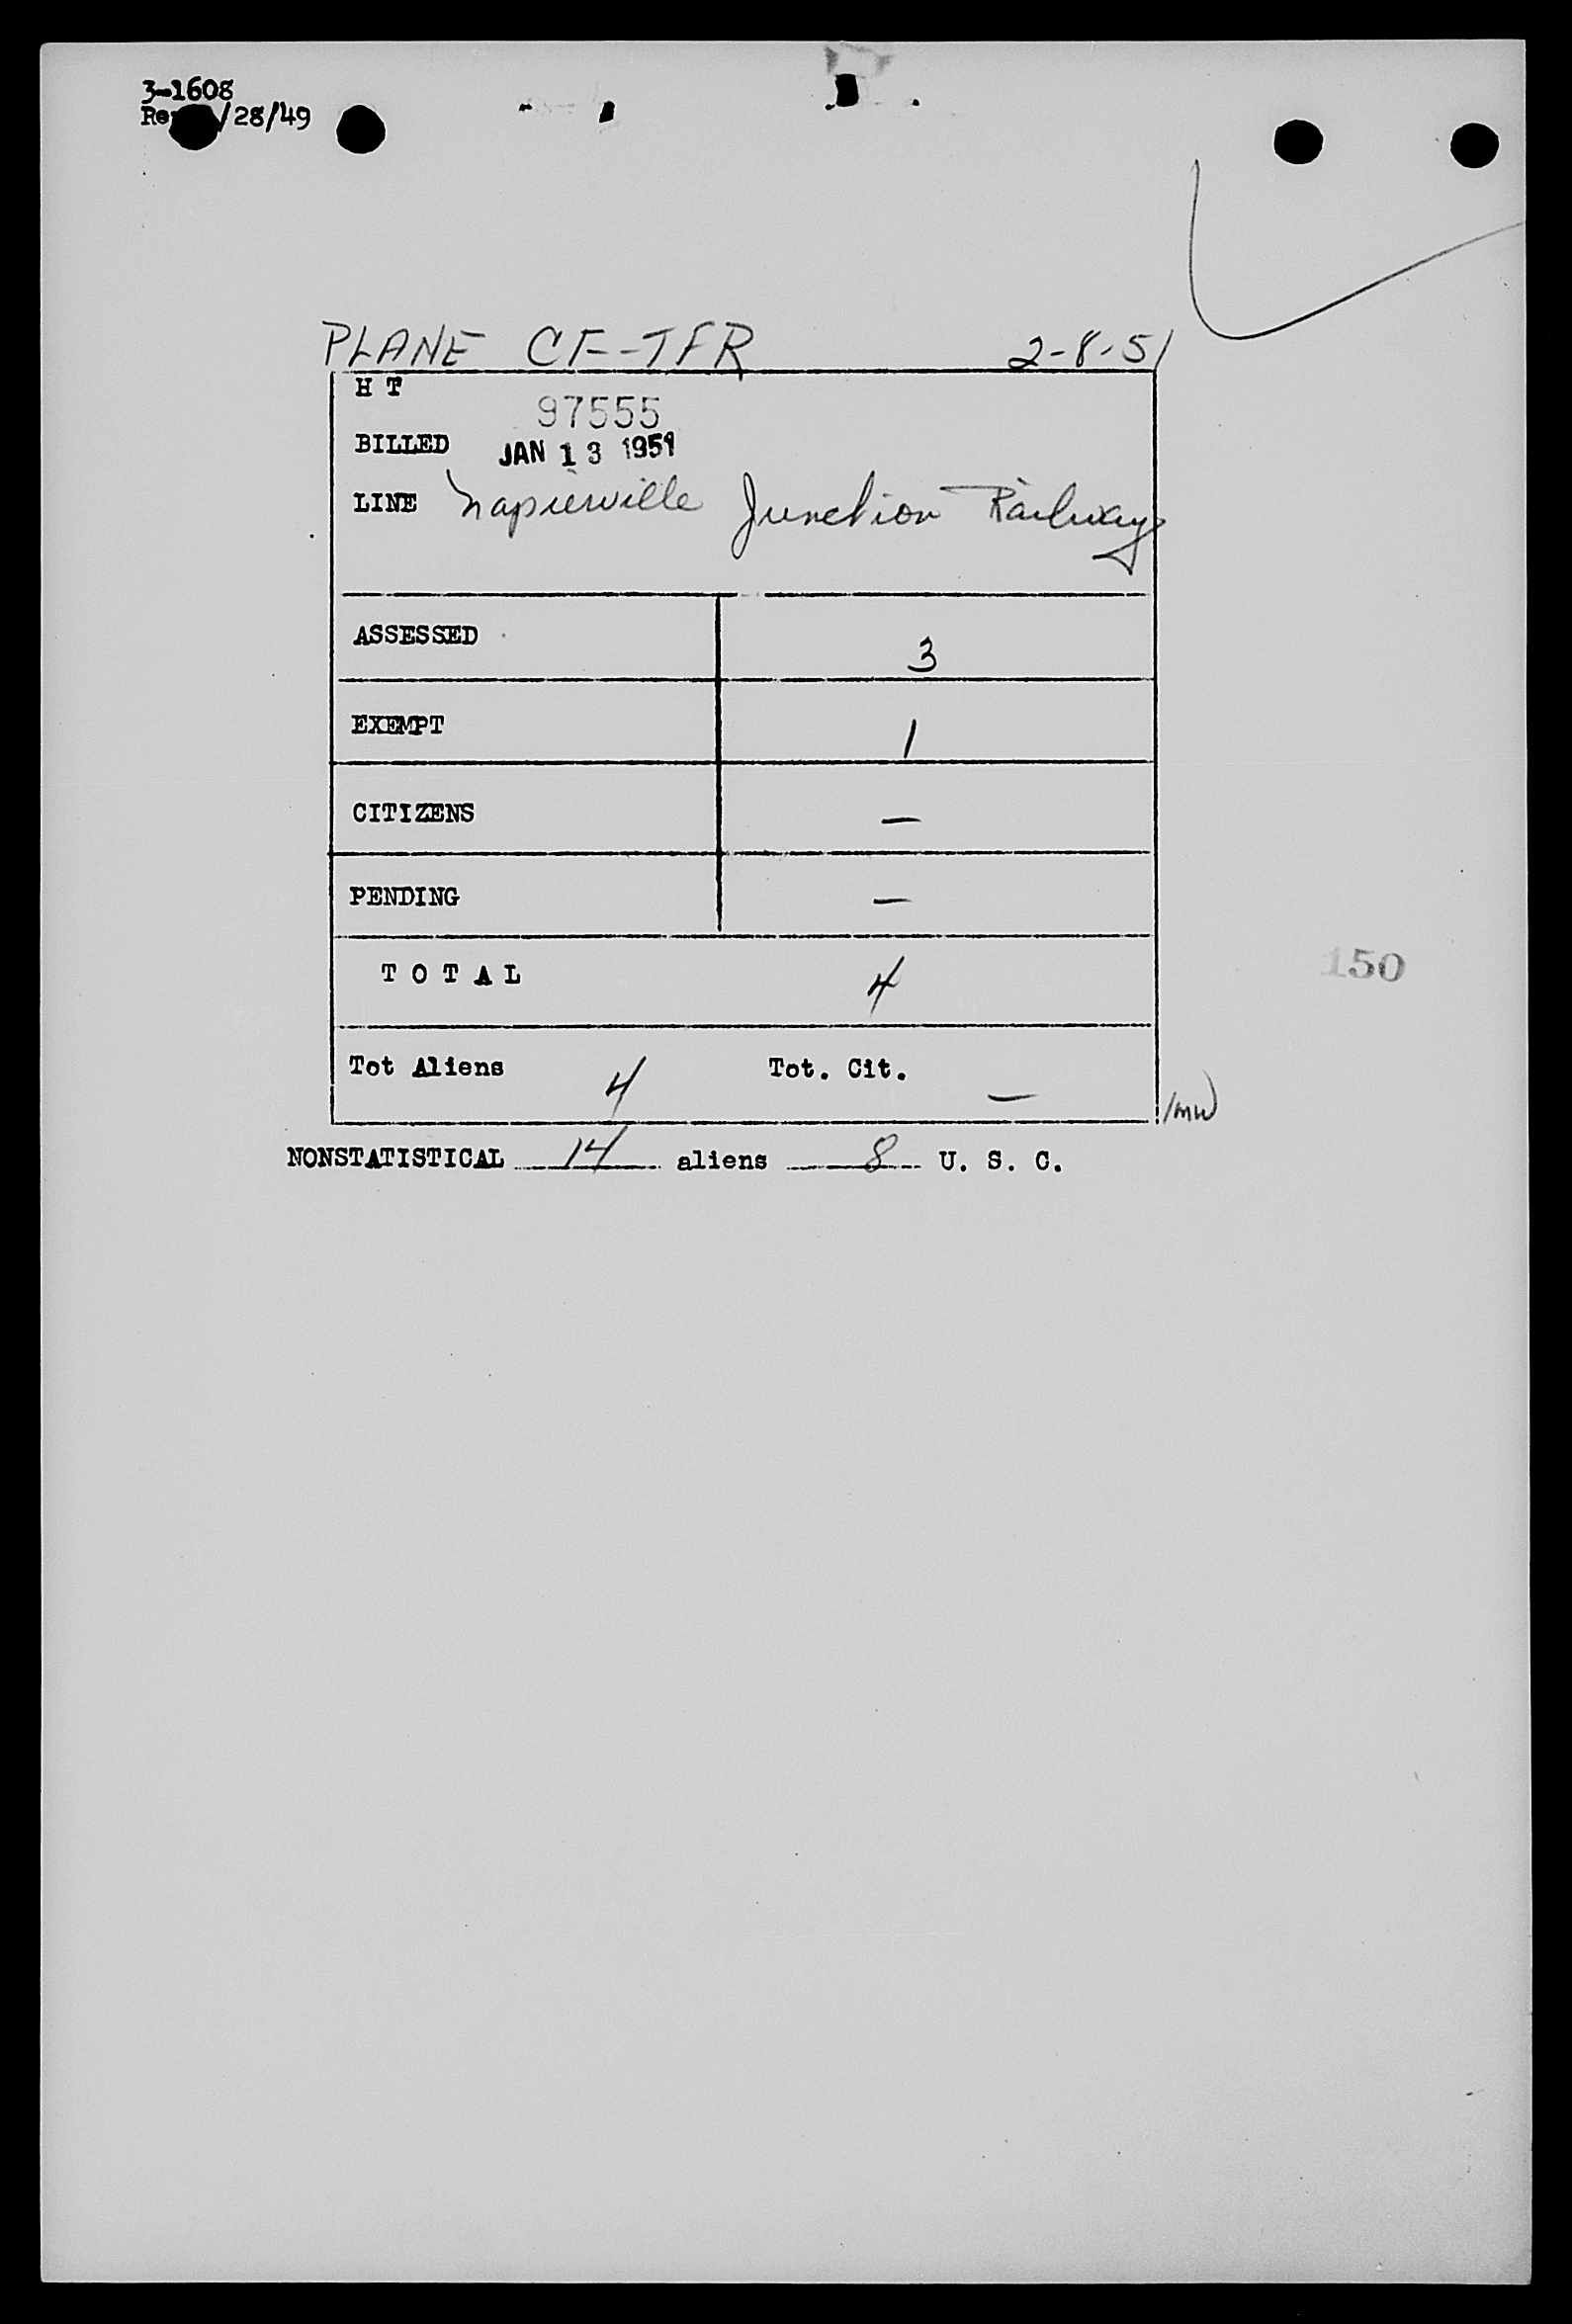 3-1608
/28/49
PLANE CF-TFR 2-8-51
H T
97555
BILLED JAN 13 1951
LINE Napierville Junction Railway
ASSESSED 3
EXEMPT 1
CITIZENS —
PENDING —
150
TOTAL 4
Tot Aliens 4 Tot. Cit. —
/mw
NONSTATISTICAL 14 aliens 8 U. S. C.